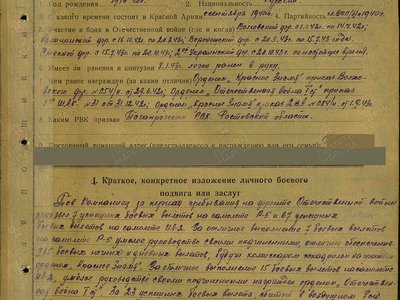 Год рождения 1916 год. 2. Национальность русский
3. С какого времени состоит в Красной Армии сентябрь 1940г. 4. Партийность
5. Участие в боях в Отечественной войне (где и когда) Волховский фр. с 01.1.42г. по
Калининский фр. с 16.11.42г. по 20.1.43г. Северо-Западный фр. с 20.3.43г. по 15.7.43 года
Степной фр. с 15.7.43г. по 20.10.43г. 2ой Украинский фр. с 20.10.43г. по настоящее время.
6. Имеет ли ранения и контузии 8.1.43г. легко ранен в руку
7. Чем ранее награжден (за какие отличия) Орденом „Красное Знамя" приказ Волхов-
ского фр. №054/н от 29.6.42г; Орденом „Отечественной война Iст." приказ
1го ШАК №31 от 31.12.42г; Орденом „Красное Знамя" приказ 2ВА №054/н от 1.9.43г.
8. Каким РВК призван Таганрогским РВК Ростовской области.
9. Постоянный домашний адрес (представляемого к награждению или его семьи)
1. Краткое, конкретное изложение личного боевого
подвига или заслуг
Тов. за период пребывания на фронте Отечественной войны
успешных боевых вылетов на самолете Р-5 и 67 успешных
боевых вылетов на самолете Ил-2. За отличное выполнение боевых вылетов
на самолете Р-5 умелое руководство своими подчиненными, отличное обеспечение
735 боевых ночных и дневных вылетов, будучи комиссаром эскадрилии награжден
орденом „Красное Знамя". За отличное выполнение 15 боевых вылетов на самолете
Ил-2, умелое руководство своими подчиненными награжден орденом „Отечествен-
ная война Iст." За 23 успешных боевых вылета сбитый в воздушном бою